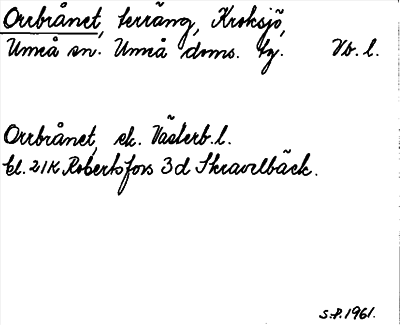 Orrbrånet, terräng, Kroksjö,
Umeå sn. Umeå doms. tg. Vb. l.
Orrbrånet, ek. Västerb. l.
bl. 21K Robertsfors 3d Skravelbäck.
S.P. 1961.